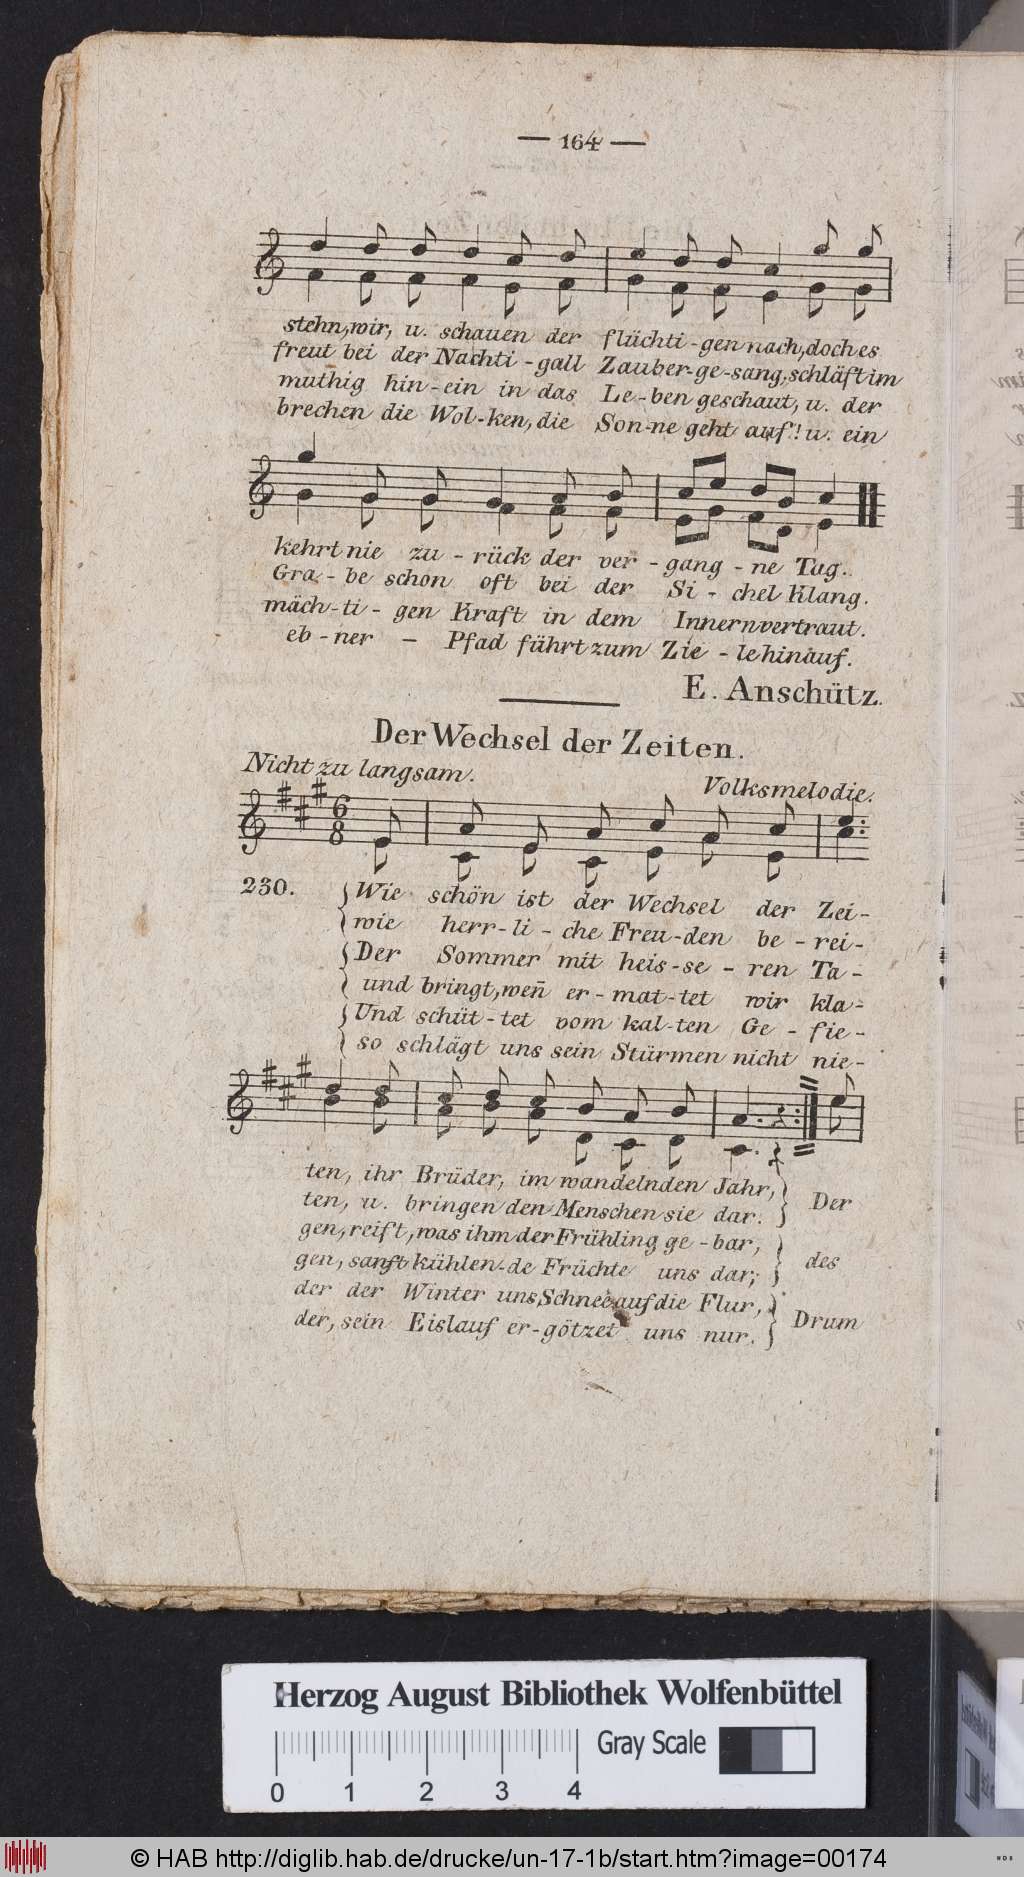 — 164 —
stehn, wir, u. schauen der flüchti - gen nach, doch es
freut bei der Nachti - gall Zauber - ge - sang, schläft im
muthig hin - ein in das Le - ben geschaut, u. der
brechen die Wol - ken, die Son - ne geht auf! u. ein
kehrt nie zu - rück der ver - gang - ne Tag.
Gra - be schon oft bei der Si - chel Klang.
mäch - ti - gen Kraft in dem Innern vertraut.
eb - ner – Pfad führt zum Zie - le hinauf.
E. Anschütz.
Der Wechsel der Zeiten.
Nicht zu langsam.
Volksmelodie.
6
8
230.
Wie schön ist der Wechsel der Zei -
wie herr - li - che Freu - den be - rei -
Der Sommer mit heis - se - ren Ta -
und bringt, weñ er - mat - tet wir kla -
Und schüt - tet vom kal - ten Ge - fie -
so schlägt uns sein Stürmen nicht nie -
ten, ihr Brüder, im wandelnden Jahr,
ten, u. bringen den Menschen sie dar.
Der
gen, reift, was ihm der Frühling ge - bar,
gen, sanft kühlen - de Früchte uns dar;
des
der der Winter uns Schnee auf die Flur,
der, sein Eislauf er - götzet uns nur.
Drum
Herzog August Bibliothek Wolfenbüttel
0 1 2 3 4
Gray Scale
© HAB http://diglib.hab.de/drucke/un-17-1b/start.htm?image=00174